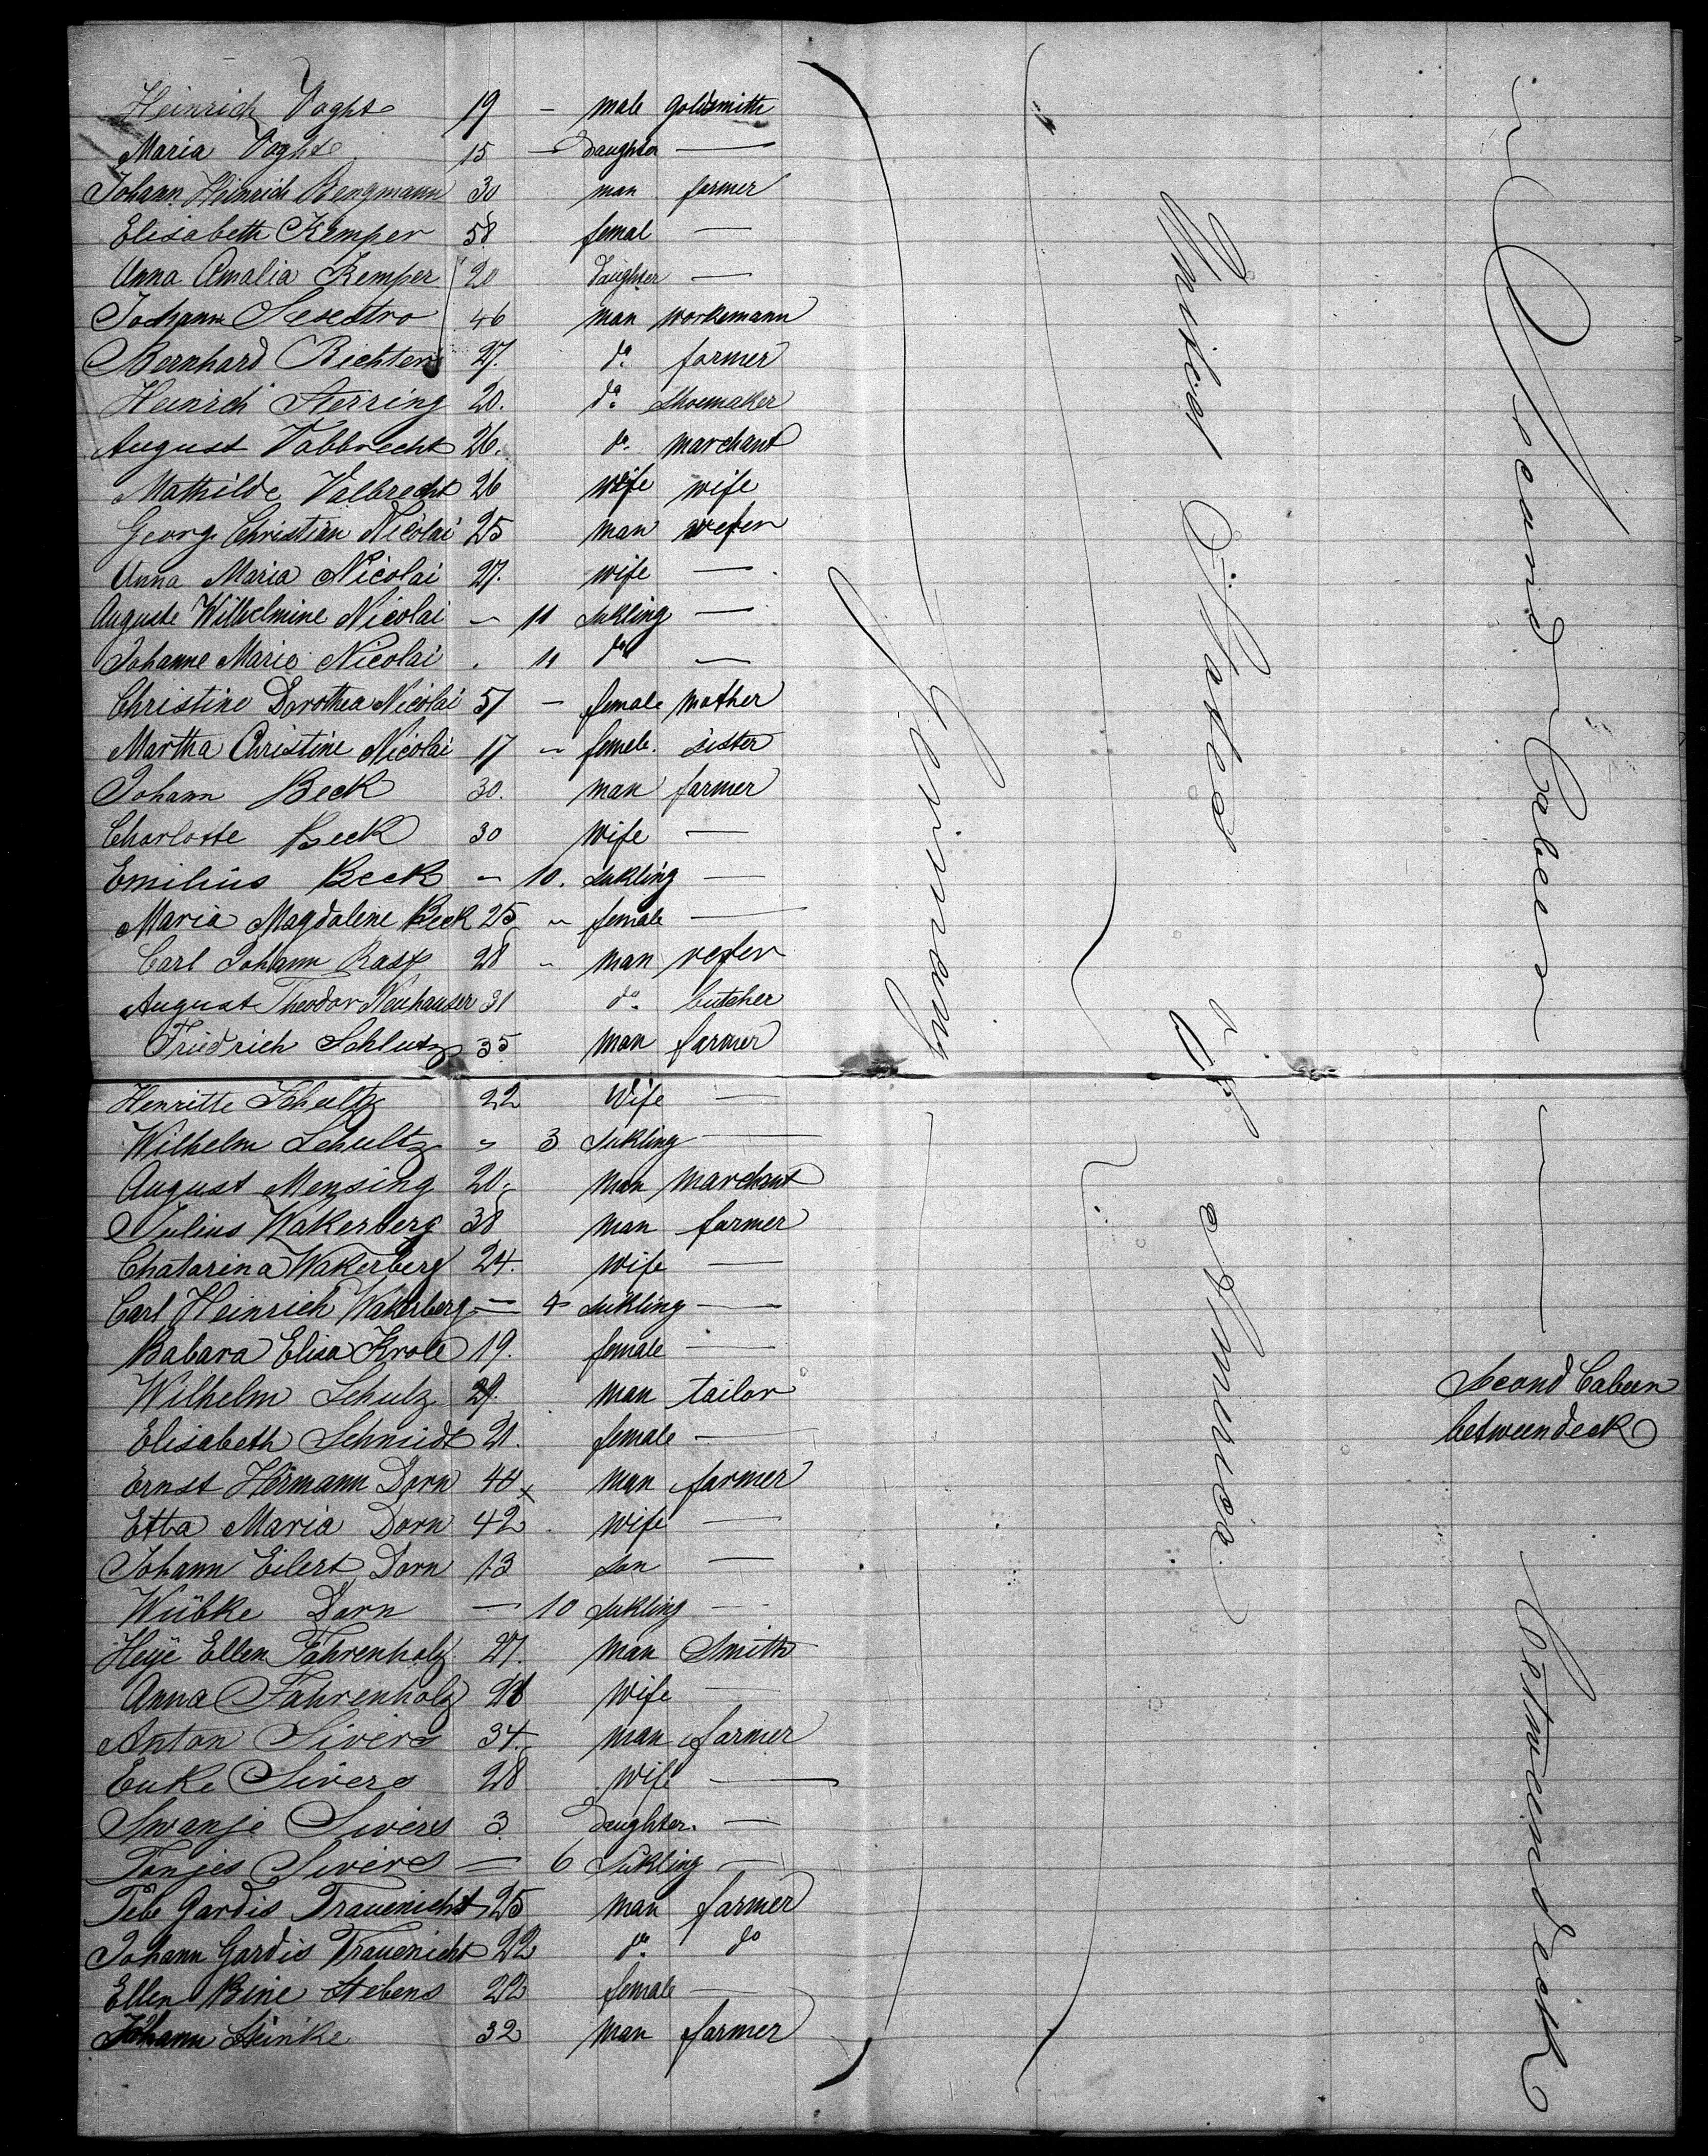 Heinrich Voght 19 - male goldsmith
Maria Voght 15 - Daughter —
Johann Heinrich Bengmann 30 man farmer
Elisabeth Kemper 58 femal —
Anna Amalia Kemper 20 Daughter —
Johann 46 man workemann
Bernhard Richter 27. do farmer
Heinrich Sterring 20. do Shoemaker
August Vabbrecht 26. do marchant
Mathilde Valbrecht 26 wife wife
Georg Christian Nicolai 25 man
Anna Maria Nicolai 27. wife —
Auguste Wilhelmine Nicolai - 11 sukling —
Johanne Marie Nicolai . 11 do —
Christine Dorothea Nicolai 57 - female mother
Martha Christine Nicolai 17 - female. sister
Johann Beck 30. man farmer
Charlotte Beck 30 wife —
Emilius Beck - 10. sukling —
Maria Magdalene Beck 25 - female —
Carl Johann Rasp 28 - man
August Theodor Neuhauser 31 do butcher
Friedrich Schlutz 35 man farmer
Henritte Schultz 22 Wife —
Wilhelm Schultz - 3 sukling —
August Mensing 20. man marchant
Julius Wakerberg 38 man farmer
Chatarina Wakerberg 24. wife —
Carl Heinrich Wakerberg — 4 sukling —
Babara Elisa Krole 19. female —
Wilhelm Schulz 29. man tailor
Elisabeth Schmidt 21. female —
Ernst Hermann Dorn 44 man farmer
Etta Maria Dorn 42 wife —
Johann Eilert Dorn 13 son —
Wübke Dorn — 10 sukling —
Heye Ellen Fahrenholz 27. man Smith
Anna Fahrenholz 28 wife —
Anton Sivers 34. man farmer
Euke Sivers 28 wife —
Swanje Sivers 3 Daughter. —
Tonjes Sivers — 6 Sukling —
Gardis Trauenicht 25 man farmer
Johann Gardis Trauenicht 22 do do
Ellen Bine Stebens 22 female —
Johann Steinke 32 man farmer
Germany
United States of America
Second Cabeen
Second Cabeen
between deck
Betweendeck